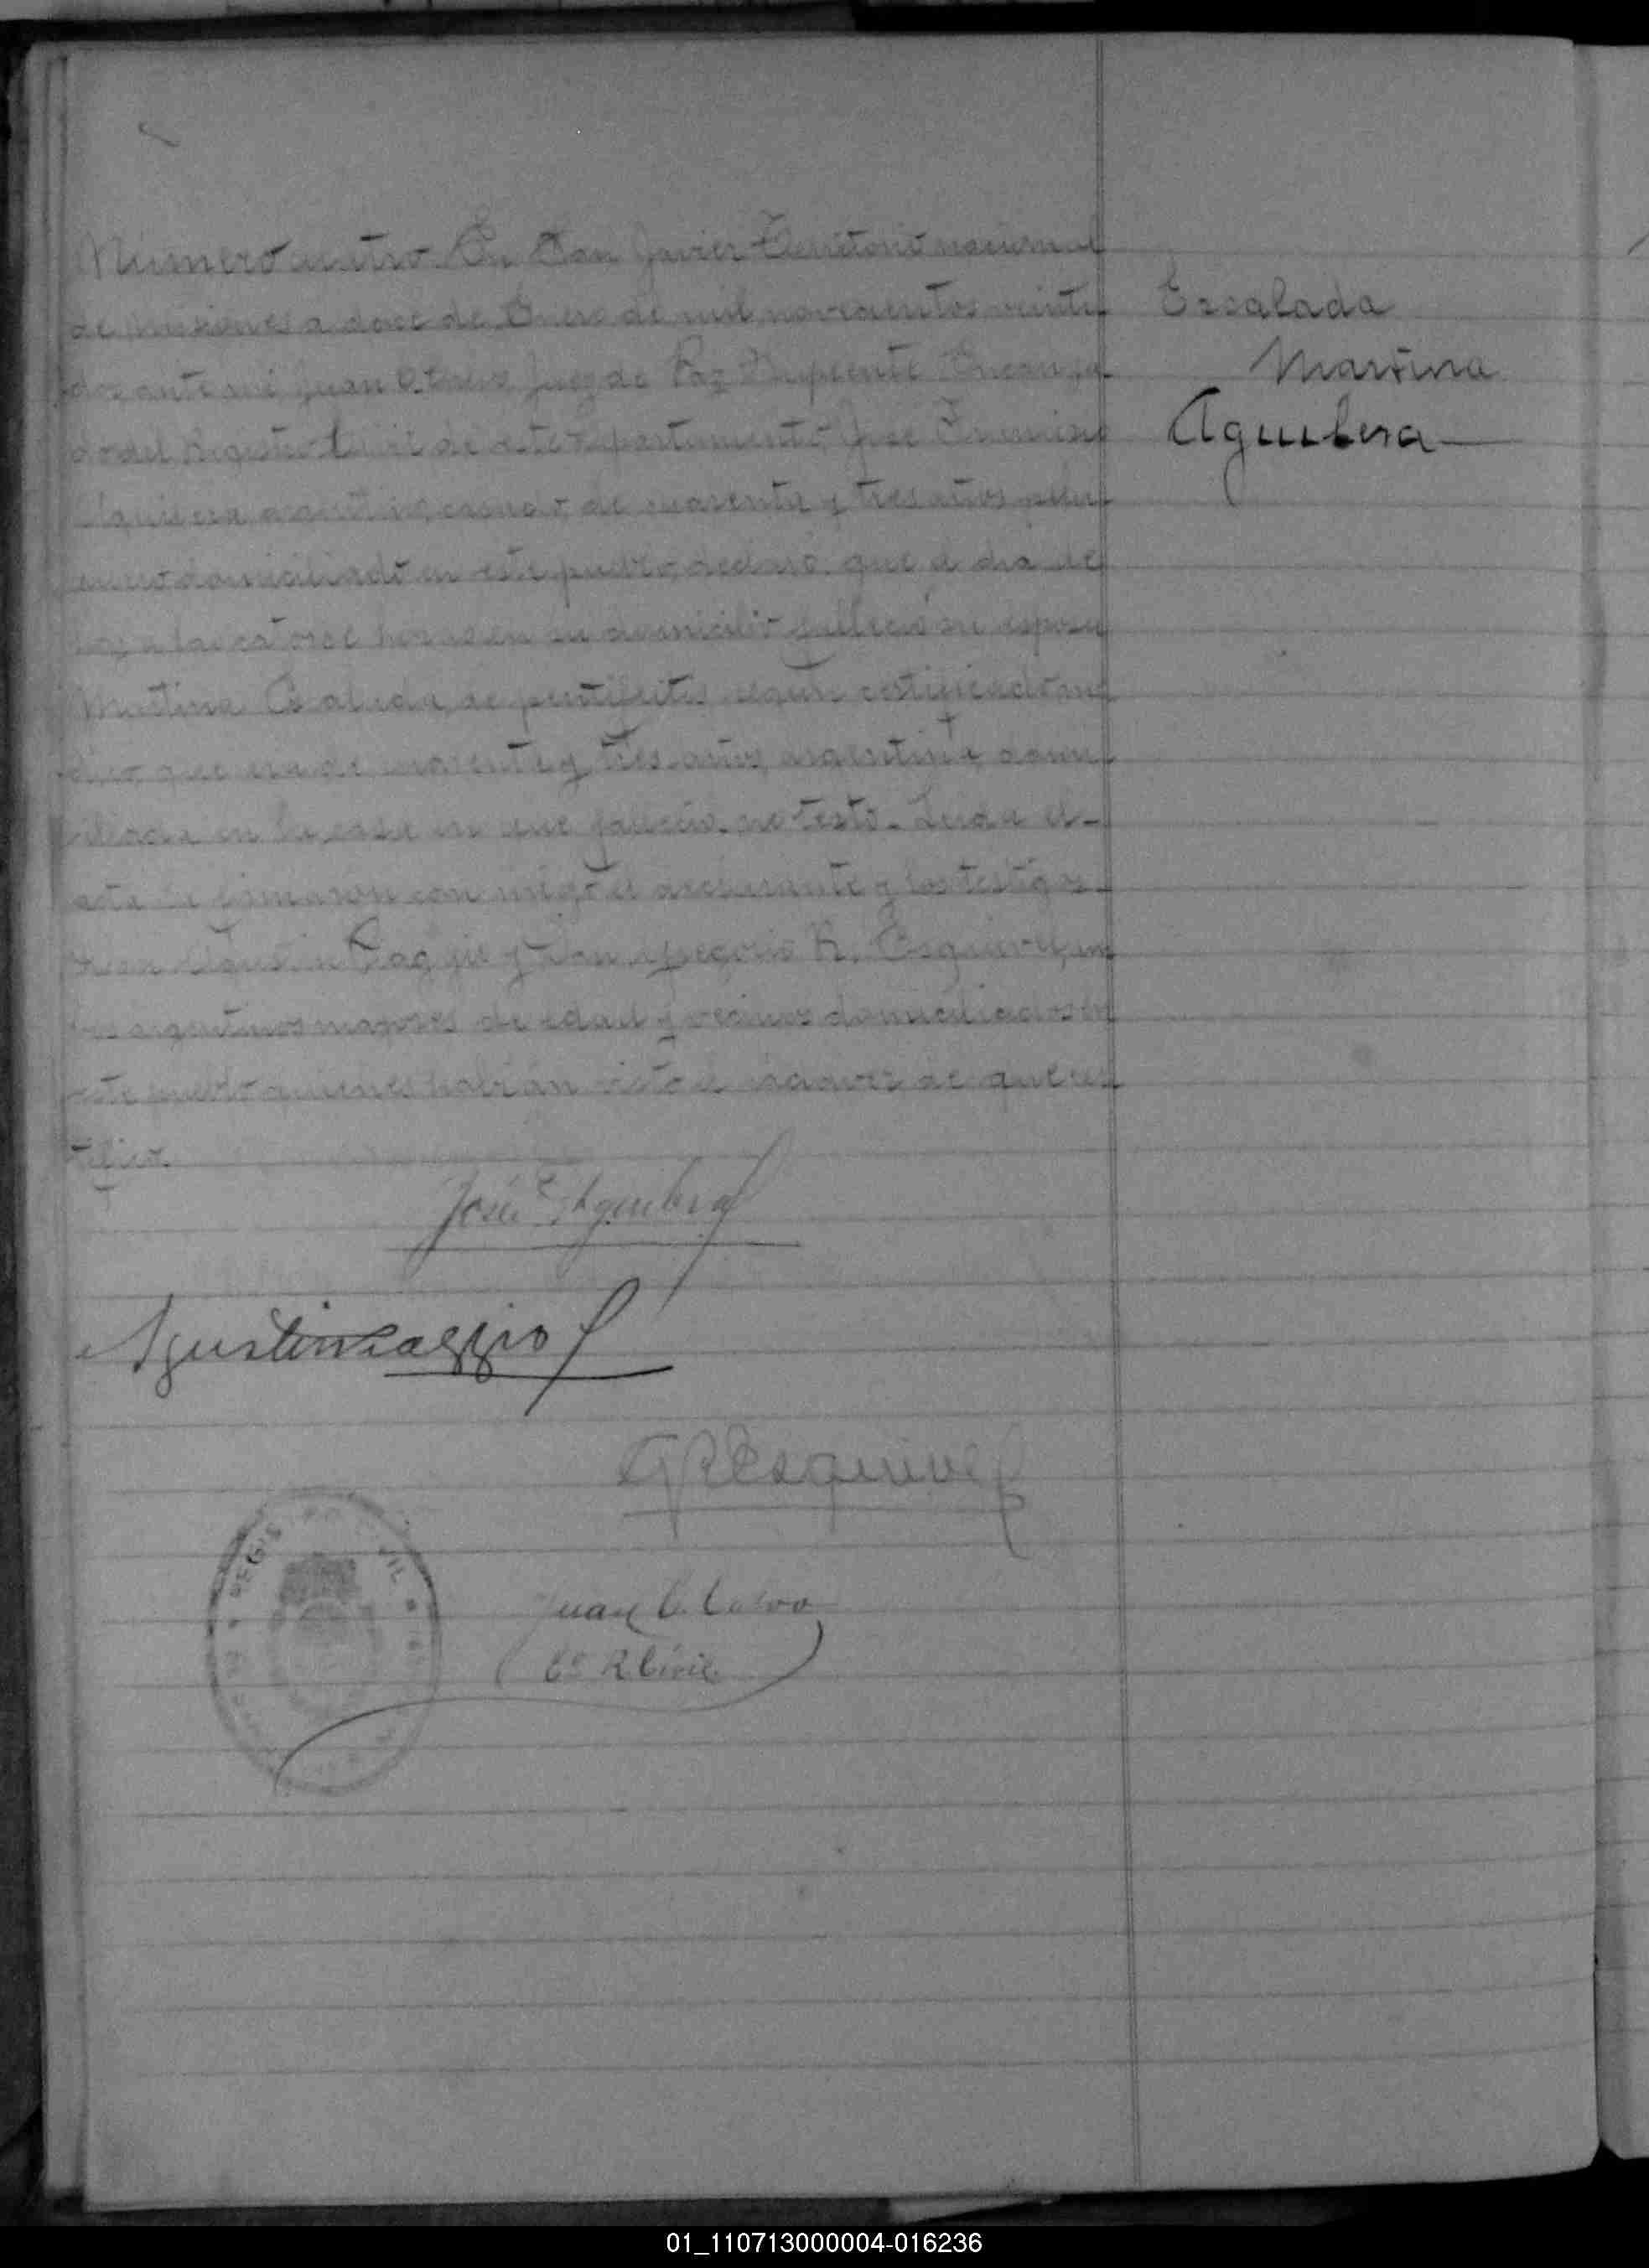 Numero cuatro En San Javier Territorio nacional
de Misiones a doce de Enero de mil novecientos veinti
dos ante mi Juan C. Juez de Paz Suplente Encarga
do del Registro Civil de este Departamento, José
Aguilera argentino, casado, de cuarenta y tres años
domiciliado en este pueblo, declaró que el dia de
hoy a las catorce horas en su domicilio falleció su esposa
Martina Escalada, de según certificado me
dico que era de cuarenta y tres años, argentina, domi
ciliada en la casa en que falleció, no testo. Leida el
acta la firmaron con migo el declarante y los testigos
Don Agustin y Don Gregorio R. Esquivel, am
bos argentinos mayores de edad y vecinos domiciliados en
este pueblo quienes habian visto el cadaver de que cer
tifico.
Escalada
Martina
Aguilera
José F Aguilera
Agustin
G R Esquivel
REGISTRO CIVIL
Juan C.
R Civil
01_110713000004-016236